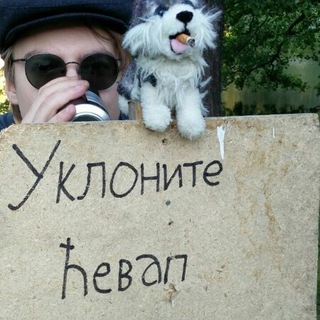 Уклоните
ћевап